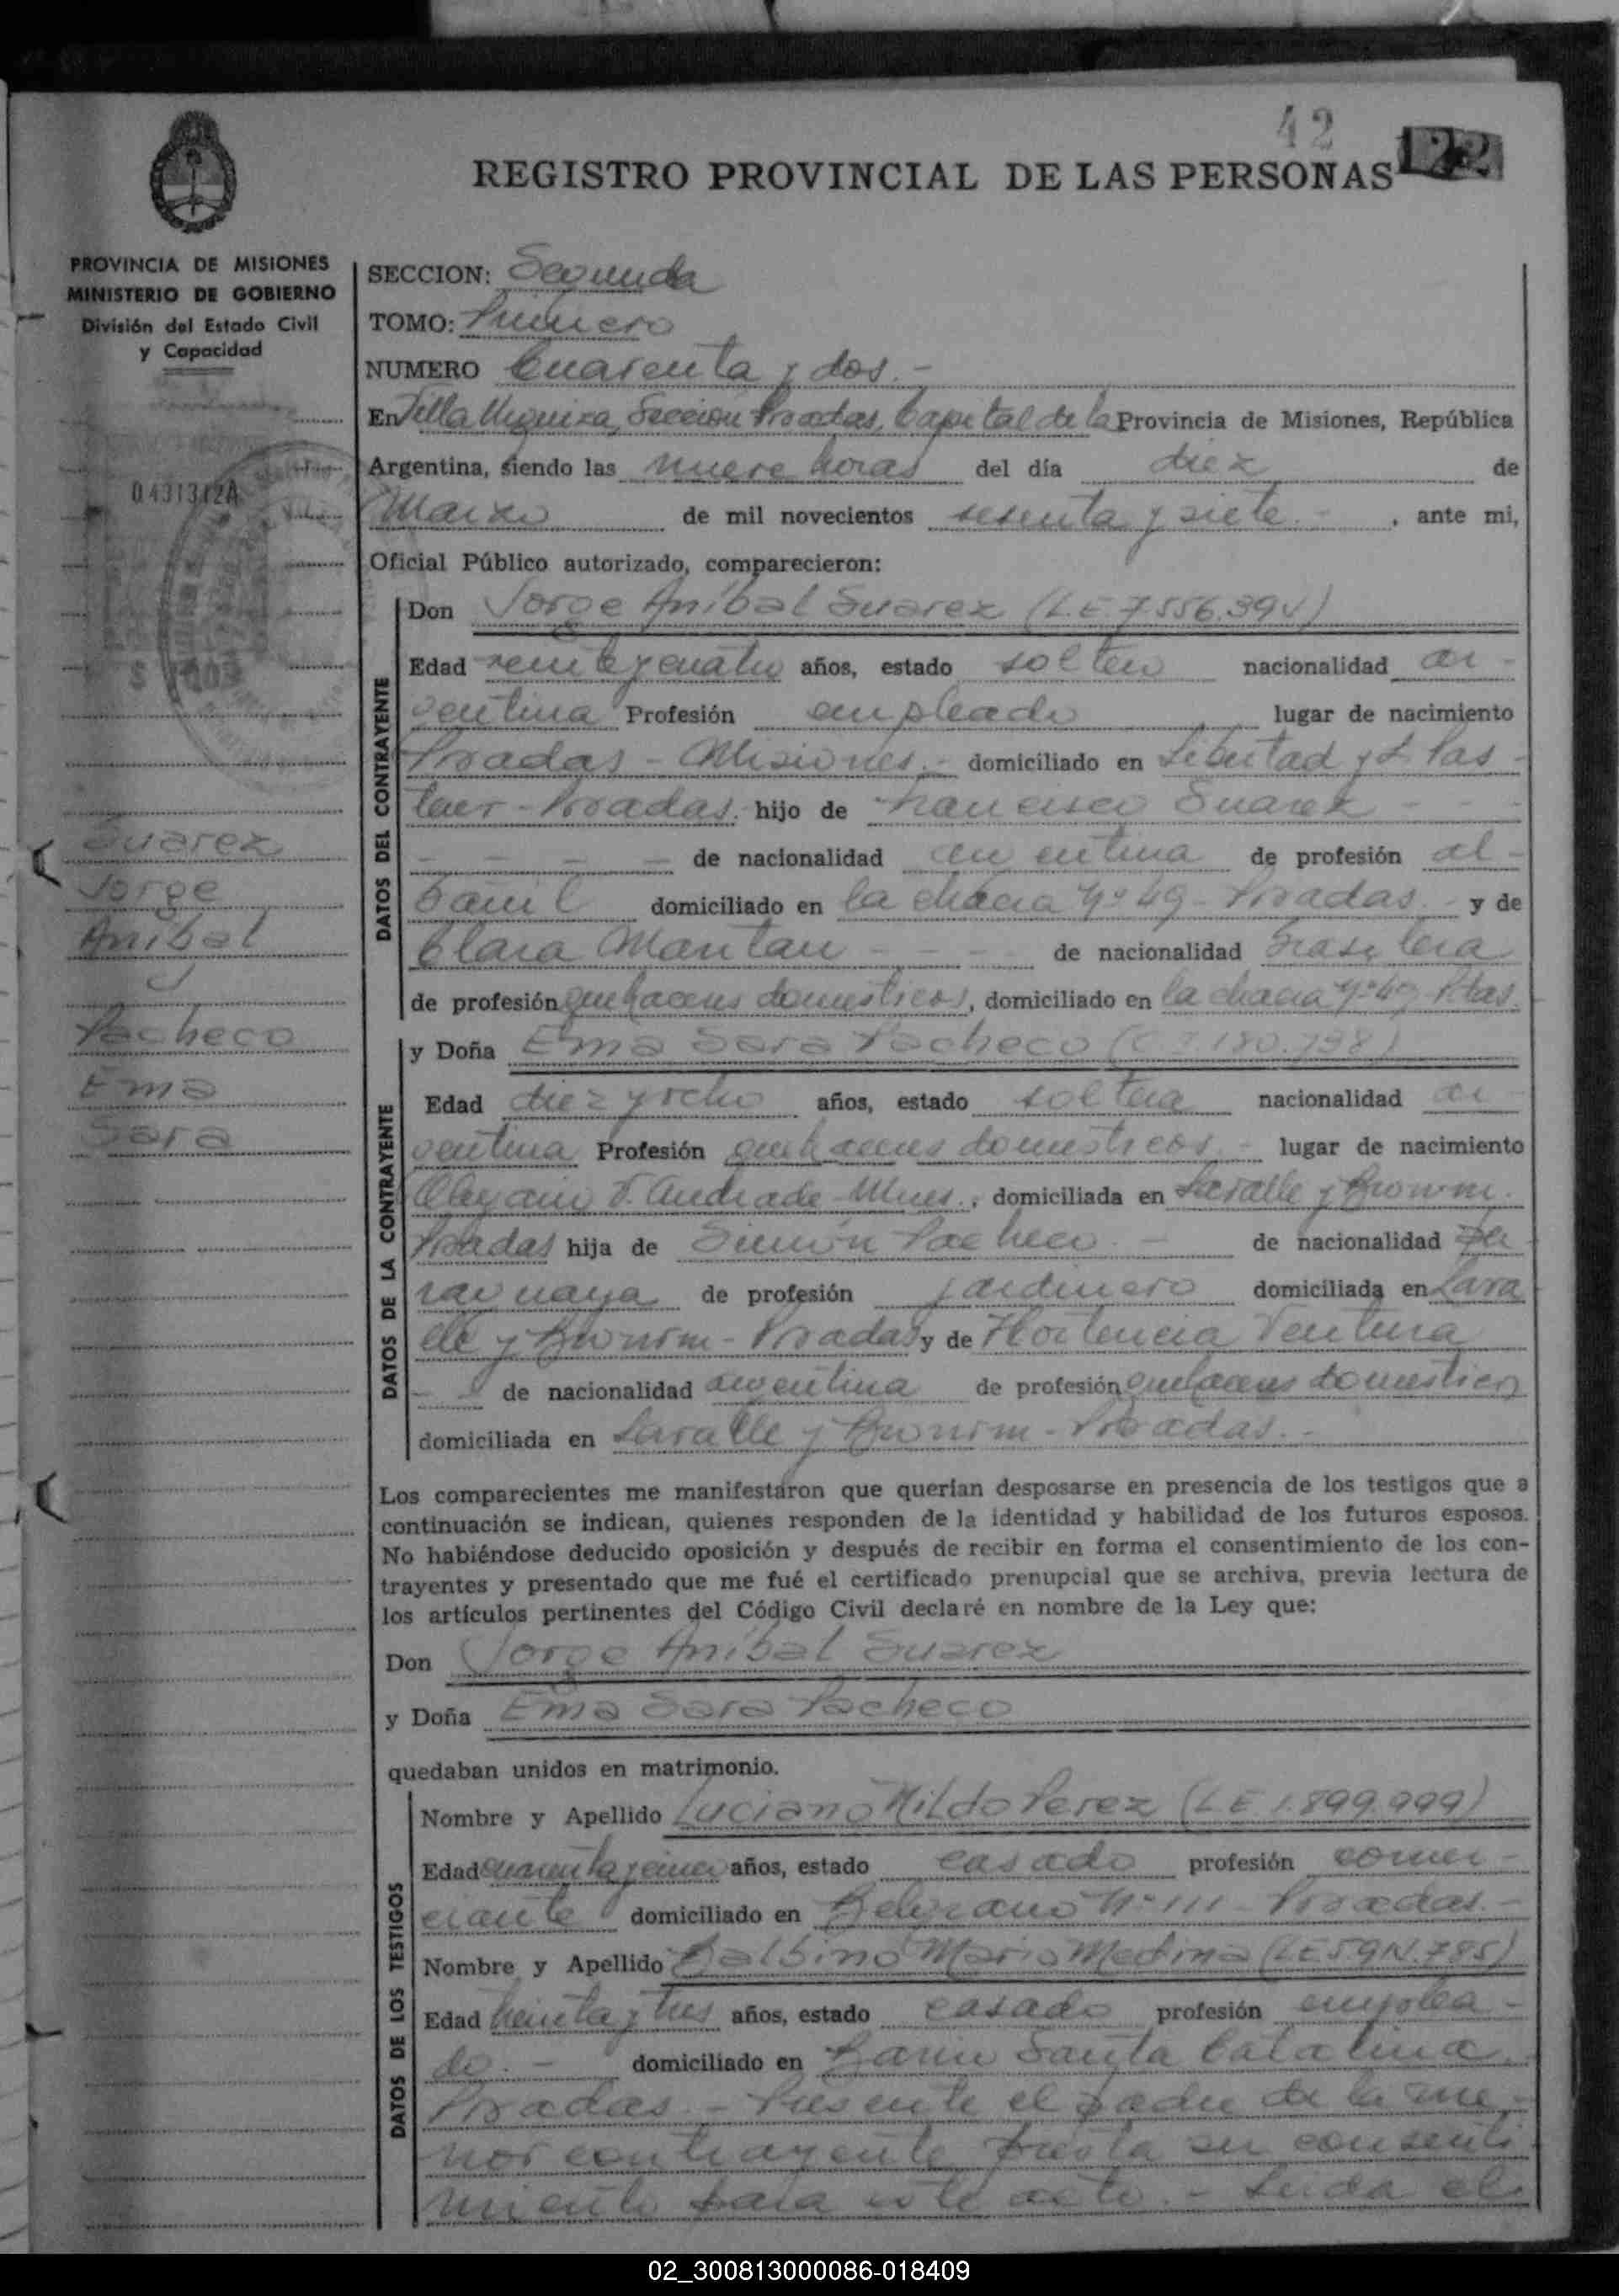 42
122
REGISTRO PROVINCIAL DE LAS PERSONAS
PROVINCIA DE MISIONES
MINISTERIO DE GOBIERNO
División del Estado Civil
y Capacidad
0431312A
Suarez
Jorge
Anibal
y
Pacheco
Ema
Sara
SECCION: Segunda
TOMO: Primero
NUMERO Cuarenta y dos.-
En Villa Urquiza, Sección Posadas, Capital de la Provincia de Misiones, República
Argentina, siendo las nueve horas del día diez de
Marzo de mil novecientos sesenta y siete.- , ante mi,
Oficial Público autorizado, comparecieron:
DATOS DEL CONTRAYENTE
Don Jorge Aníbal Suarez (LE 7.556.394)
Edad veinte y cuatro años, estado soltero nacionalidad ar-
gentina Profesión empleado lugar de nacimiento
Posadas - Misiones.- domiciliado en Libertad y L. Pas-
teur - Posadas. hijo de Francisco Suarez - - -
- - - - de nacionalidad argentina de profesión al-
bañil domiciliado en la chacra Nº 49 - Posadas.- y de
Clara - - - de nacionalidad brasilera
de profesión quehaceres domesticos, domiciliado en la chacra Nº 49 - Pdas.
DATOS DE LA CONTRAYENTE
y Doña Ema Sara Pacheco (C.I. 180.798)
Edad diez y ocho años, estado soltera nacionalidad ar-
gentina Profesión quehaceres domesticos.- lugar de nacimiento
Olegario V. Andrade - Mnes., domiciliada en Lavalle y Brownm.
Posadas hija de Simón Pacheco.- de nacionalidad pa-
raguaya de profesión jardinero domiciliada en Lava-
lle y Brownm - Posadas y de Hortencia Ventura
- - de nacionalidad argentina de profesión quehaceres domesticos
domiciliada en Lavalle y Brownm - Posadas.-
Los comparecientes me manifestaron que querían desposarse en presencia de los testigos que a
continuación se indican, quienes responden de la identidad y habilidad de los futuros esposos.
No habiéndose deducido oposición y después de recibir en forma el consentimiento de los con-
trayentes y presentado que me fué el certificado prenupcial que se archiva, previa lectura de
los artículos pertinentes del Código Civil declaré en nombre de la Ley que:
Don Jorge Aníbal Suarez
y Doña Ema Sara Pacheco
quedaban unidos en matrimonio.
DATOS DE LOS TESTIGOS
Nombre y Apellido Luciano Nildo Perez (LE 1.899.999)
Edad cuarenta y cinco años, estado casado profesión comer-
ciante domiciliado en Belgrano Nº 111 - Posadas.-
Nombre y Apellido Balbino Mario Medina
Edad treinta y tres años, estado casado profesión emplea-
do.- domiciliado en Barrio Santa Catalina.
Posadas.- Presente el padre de la me-
nor contrayente presta su consenti-
miento para este acto.- Leida el
02_300813000086-018409